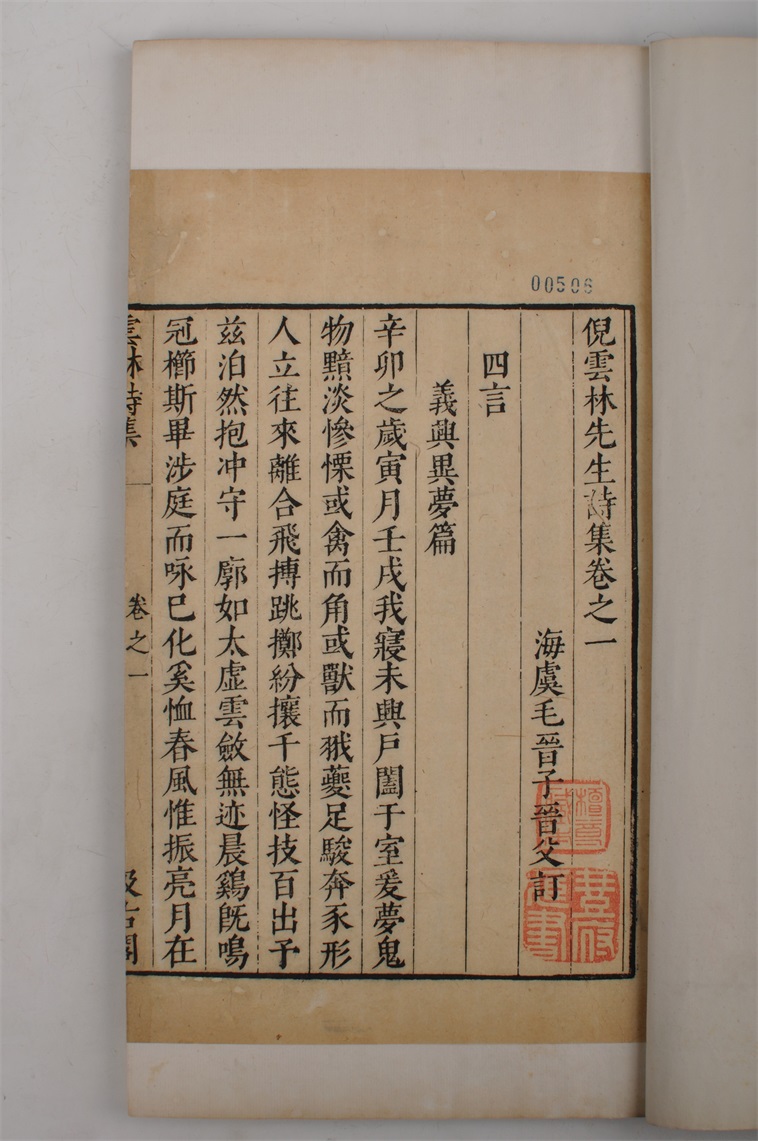 00506
倪雲林先生詩集卷之一
海虞毛晉子晉父訂
四言
義興異夢篇
辛卯之歲寅月壬戌我寢未興戶闔于室爰夢鬼
物黯淡慘慄或禽而角或獸而翼夔足駿奔豕形
人立往來離合飛搏跳擲紛攘千態怪技百出予
茲泊然抱冲守一廓如太虛雲斂無迹晨鷄旣鳴
冠櫛斯畢涉庭而咏已化奚恤春風惟振亮月在
雲林詩集
卷之一
汲古閣